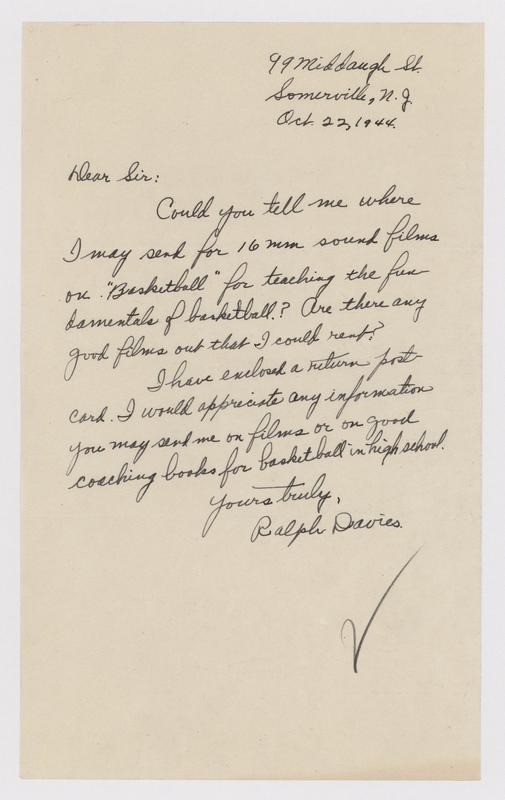 99 Middaugh St.
Somerville, N.J.
Oct. 22, 1944.
Dear Sir:
Could you tell me where
I may send for 16 mm sound films
on "Basketball" for teaching the fun-
damentals of basketball? Are there any
good films out that I could rent?
I have enclosed a return post
card. I would appreciate any information
you may send me on films or on good
coaching books for basketball in high school.
Yours truly,
Ralph Davies.